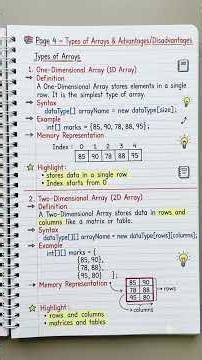 Page 4 - Types of Arrays & Advantages/Disadvantages
Types of Arrays
1. One-Dimensional Array (1D Array)
→ Definition
A One-Dimensional Array stores elements in a single
row. It is the simplest type of array.
→ Syntax
dataType[] arrayName = new dataType[size];
→ Example
int[] marks = {85, 90, 78, 88, 95};
→ Memory Representation
Index : 0 1 2 3 4
85 90 78 88 95
Highlight:
• stores data in a single row
• Index starts from 0
2. Two-Dimensional Array (2D Array)
→ Definition
A Two-Dimensional Array stores data in rows and
columns like a matrix or table.
→ Syntax
dataType[][] arrayName = new dataType[rows][columns];
→ Example
int[][] marks = {
{85, 90},
{78, 88},
{95, 80} };
→ Memory Representation →
85 90
78 88 → rows
95 80
↳ columns
Highlight:
• rows and columns
• matrices and tables